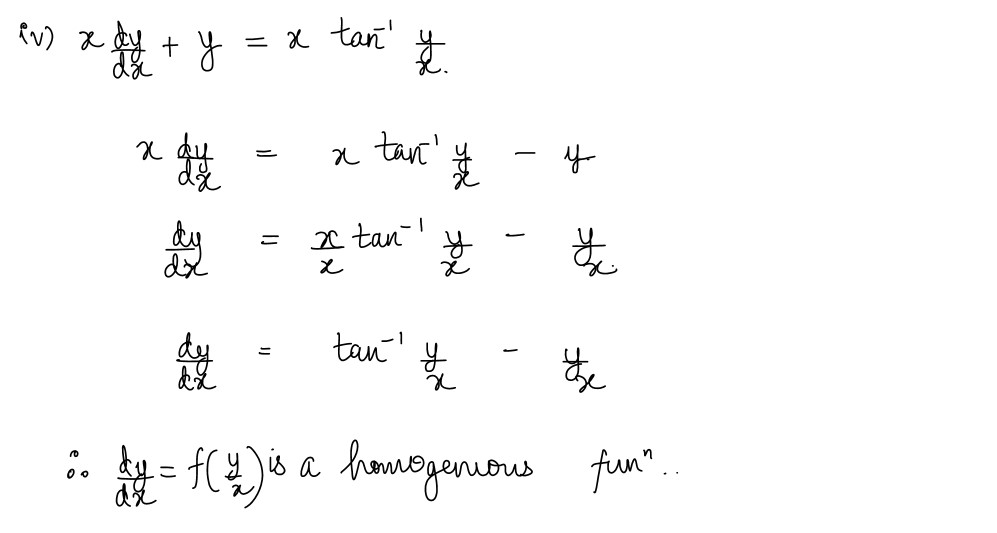 iv) x dy/dx + y = x tan⁻¹ y/x.
x dy/dx = x tan⁻¹ y/x - y
dy/dx = x/x tan⁻¹ y/x - y/x.
dy/dx = tan⁻¹ y/x - y/x
∴ dy/dx = f(y/x) is a homogenious funⁿ ..